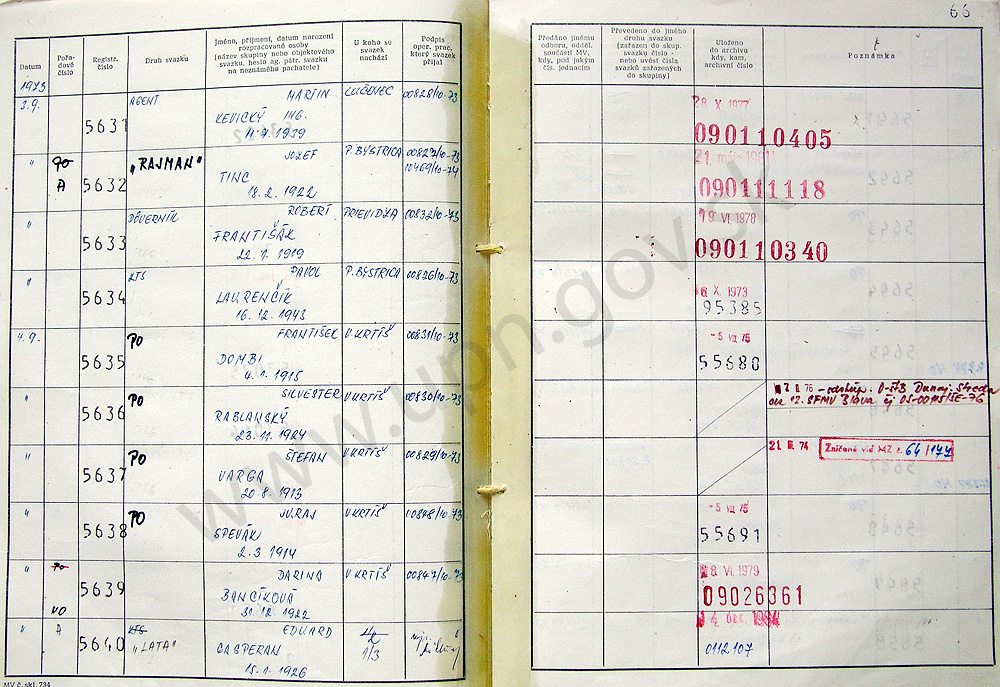 66
Datum
Pořa-
dové
číslo
Registr.
číslo
Druh svazku
Jméno, příjmení, datum narození
rozpracované osoby
(název skupiny nebo objektového
svazku, heslo ag. pátr. svazku
na neznámého pachatele)
U koho se
svazek
nachází
Podpis
oper. prac.
který svazek
přijal
Předáno jinému
odboru, odděl.
součásti MV,
kdy, pod jakým
čís. jednacím
Převedeno do jiného
druhu svazku
(zařazen do skup.
svazku číslo -
nebo uvést čísla
svazků zařazených
do skupiny)
Uloženo
do archivu
kdy, kam,
archivní číslo
Poznámka
1973
3.9. 5631 AGENT MARTIN LUČENEC 00828/10-73
KEVICKÝ ING.
11.7.1939
28 X 1977
090110405
" PO A 5632 "RAJMAN" JOZEF P. BYSTRICA 00827/10-73
TINC 10469/10-74
18.2.1922
21. máj 1981
090111118
" 5633 DÔVERNÍK ROBERT PRIEVIDZA 00832/10-73
FRANTIŠÁK
22.1.1919
19 VI. 1978
090110340
" 5634 KTS PAVOL P. BYSTRICA 00826/10-73
LAURENČÍK
16.12.1943
X. 1973
95385
4.9. 5635 PO FRANTIŠEK V KRTÍŠ 00831/10-73
DOMBI
4.1.1915
-5 VII 75
55680
" 5636 PO SILVESTER V KRTÍŠ 00830/10-73
RABLANSKÝ
23.11.1924
" 5637 PO ŠTEFAN V KRTÍŠ 00829/10-73
VARGA
20.8.1913
21. III. 74 Zničené viď MZ č. 64/177
" 5638 PO JURAJ V KRTÍŠ 00848/10-73
SPEVÁK
2.3.1914
-5 VII 75
55691
" PO VO 5639 DARINA V KRTÍŠ 00847/10-73
BANČÍKOVÁ
31.12.1922
VI. 1979
09026361
" A 5640 KTS EDUARD
"LATA" GASPERAN 1/3
15.1.1926
0112107
MV č. skl. 734
www.upn.gov.sk